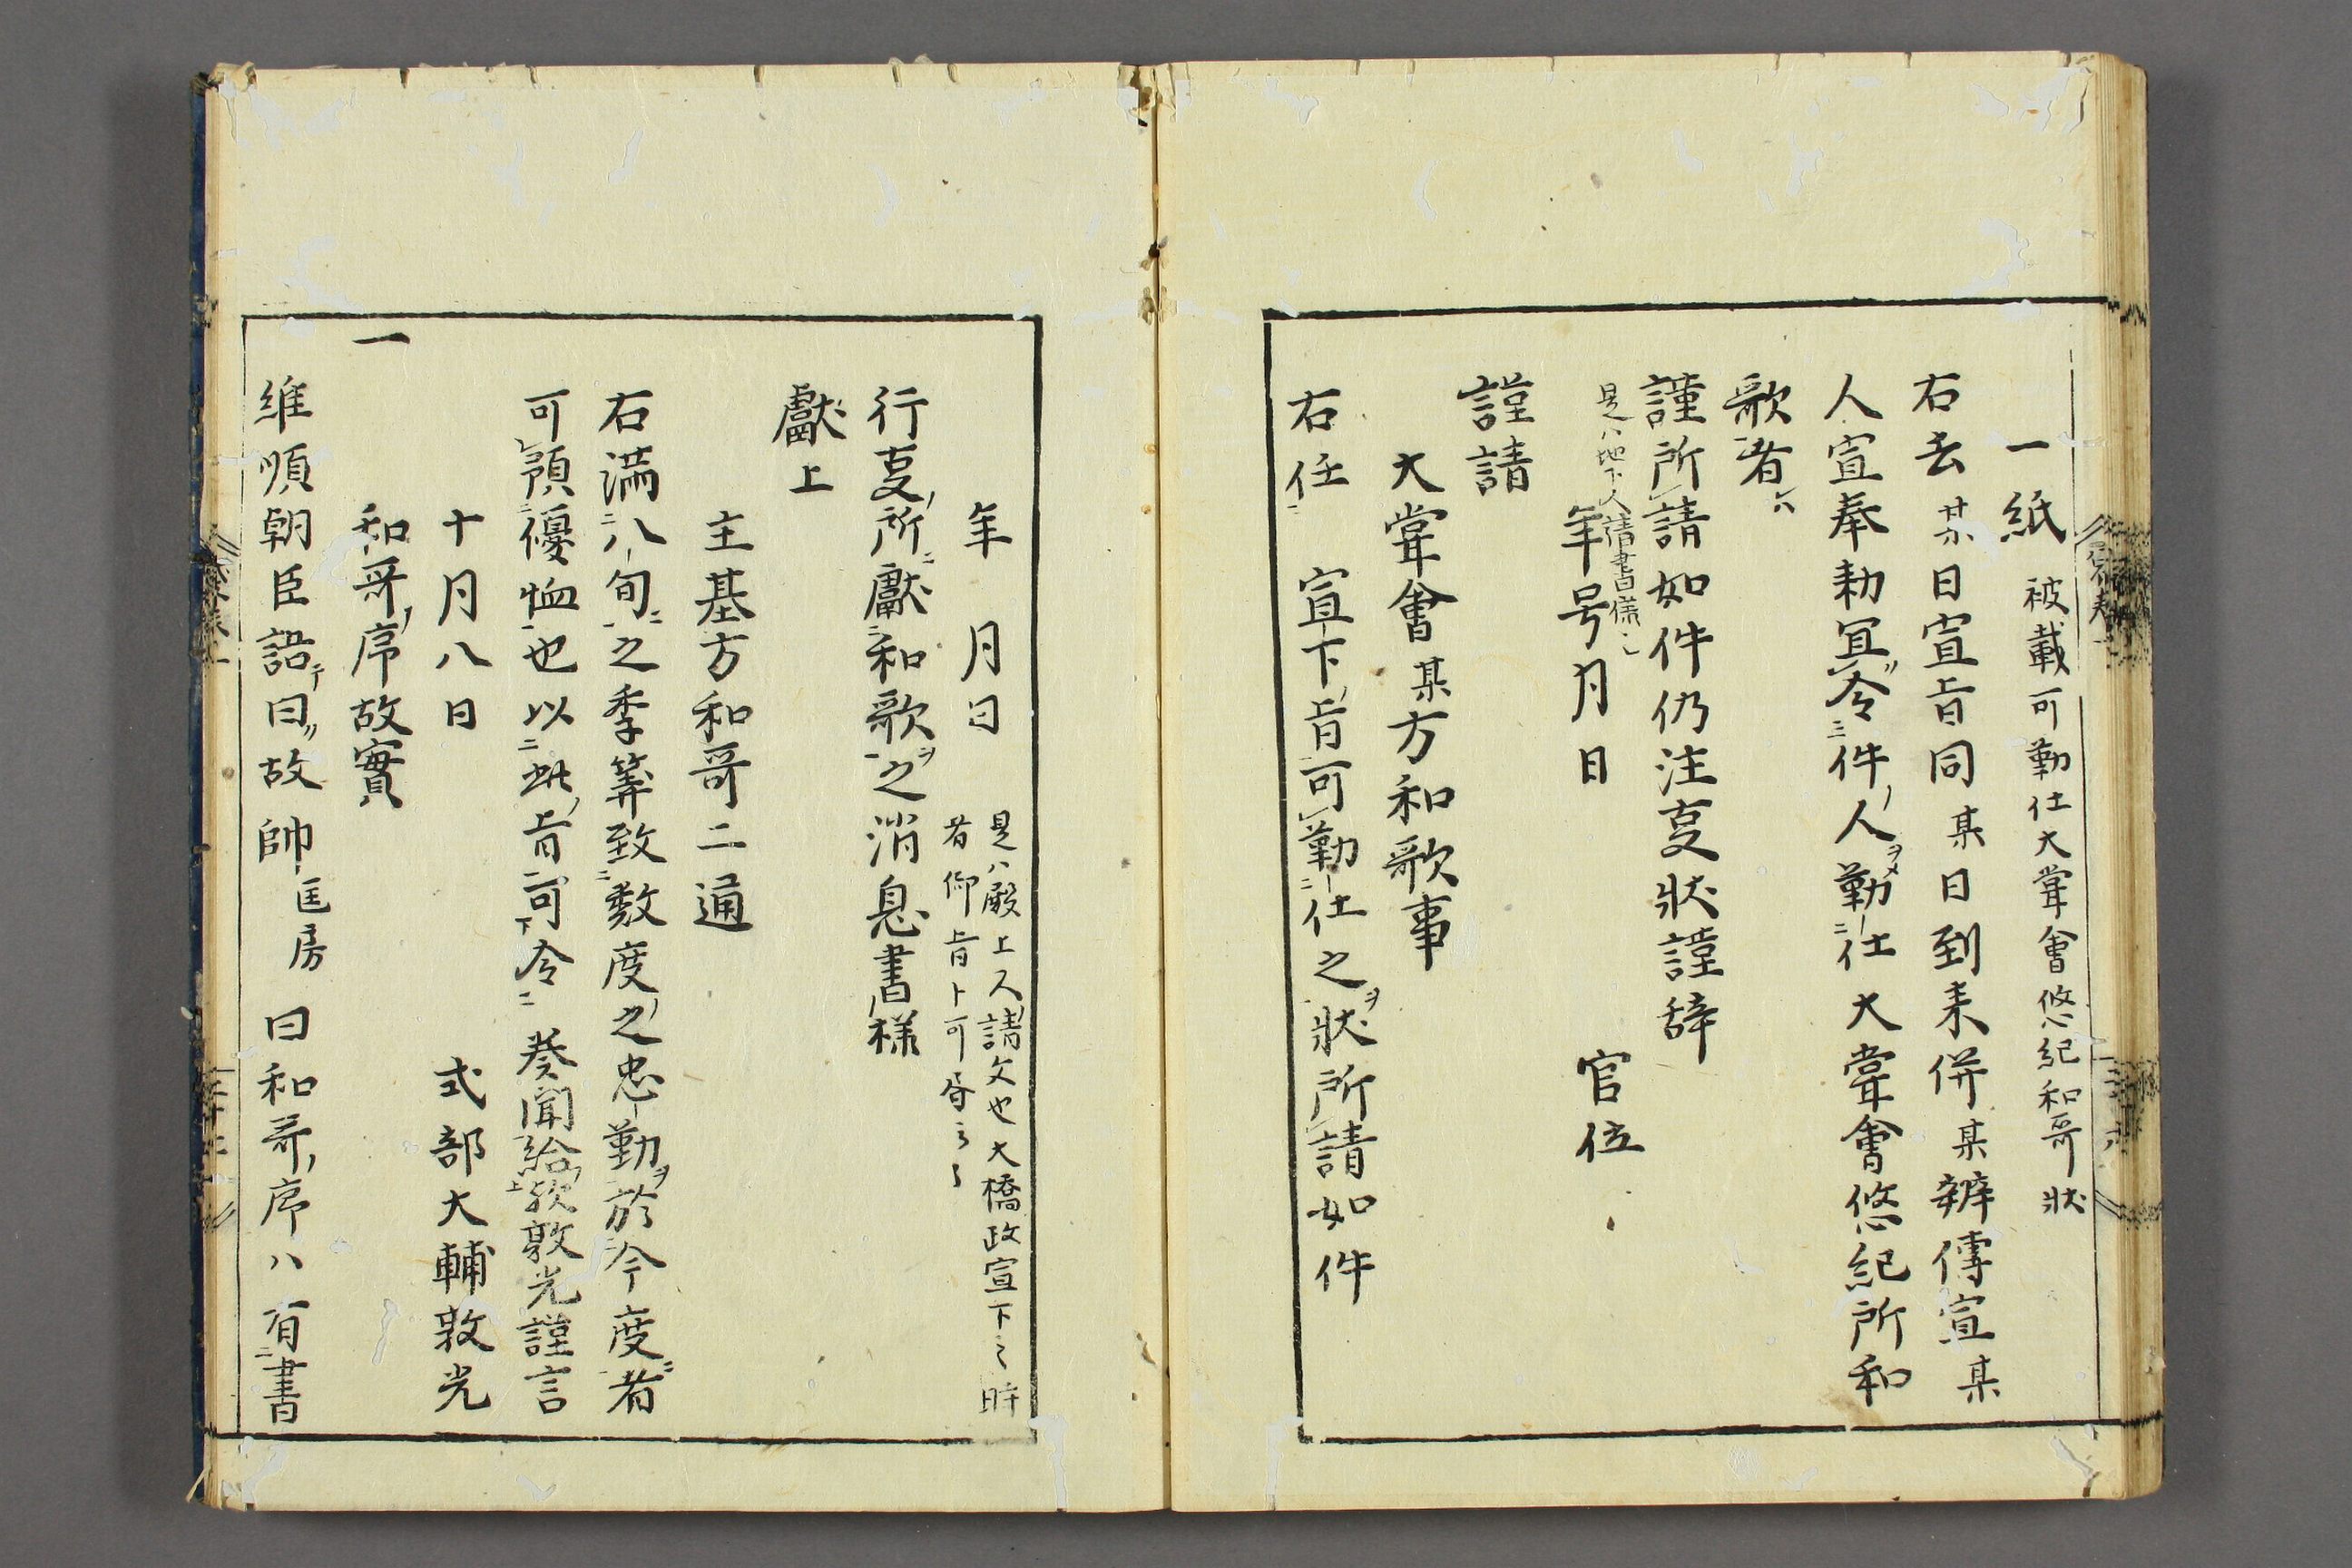 一紙 被載可勤仕大甞會悠紀和哥狀
右去某日宣旨同某日到来併某辨傳宣某
人宣奉勅冝令件人勤仕大甞會悠紀所和
歌者
謹所請如件仍注㕝狀謹辞
是ハ地下人請書様
年号月日 官位
謹請
大甞會某方和歌事
右任 宣下旨可勤仕之狀所請如件
年 月日 是ハ殿上人請文也大橋政宣下之時
者仰旨ト可
行㕝所獻和歌之消息書様
獻上
主基方和哥二通
右満八旬之季筭致數度之忠勤於今度者
可預優恤也以此旨可令 奏聞給歟敦光謹言
十月八日 式部大輔敦光
一 和哥序故實
維順朝臣語曰故帥匡房曰和哥序ハ有書